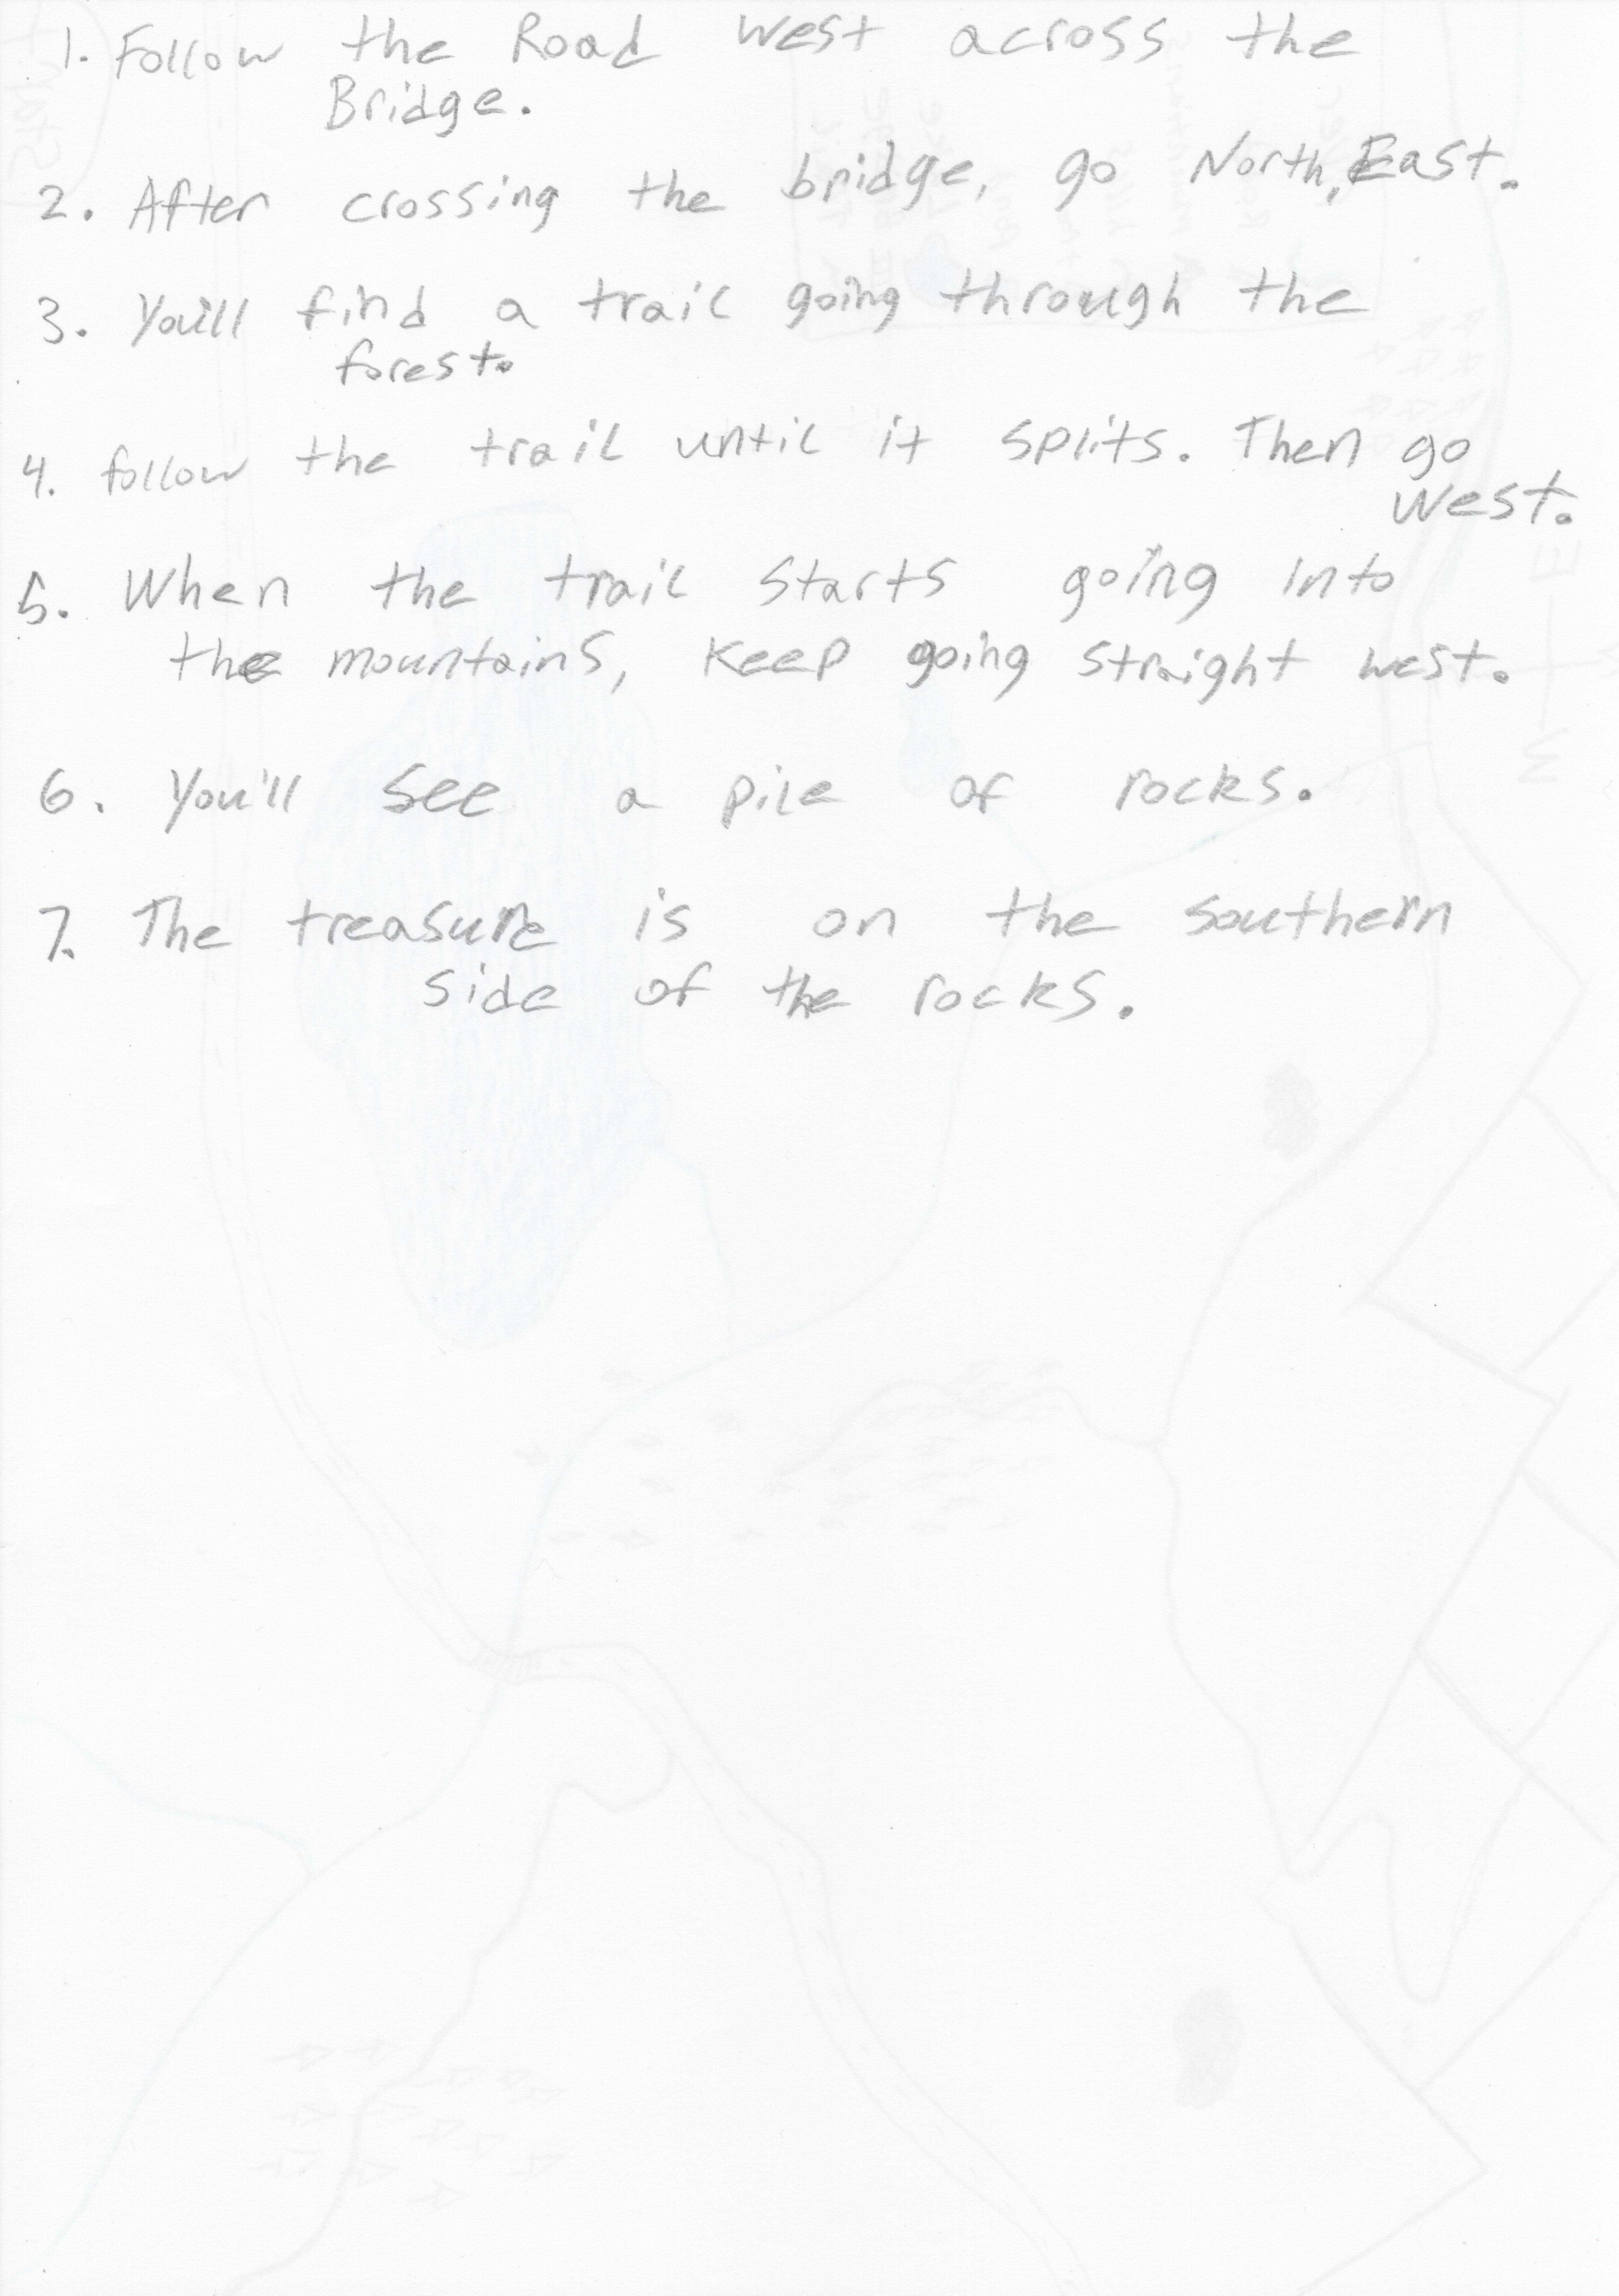 1. Follow the Road west across the
Bridge.
2. After crossing the bridge, go North, East.
3. You'll find a trail going through the
forest.
4. follow the trail until it splits. Then go
west.
5. When the trail starts going into
the mountains, keep going straight west.
6. You'll see a pile of rocks.
7. The treasure is on the southern
side of the rocks.